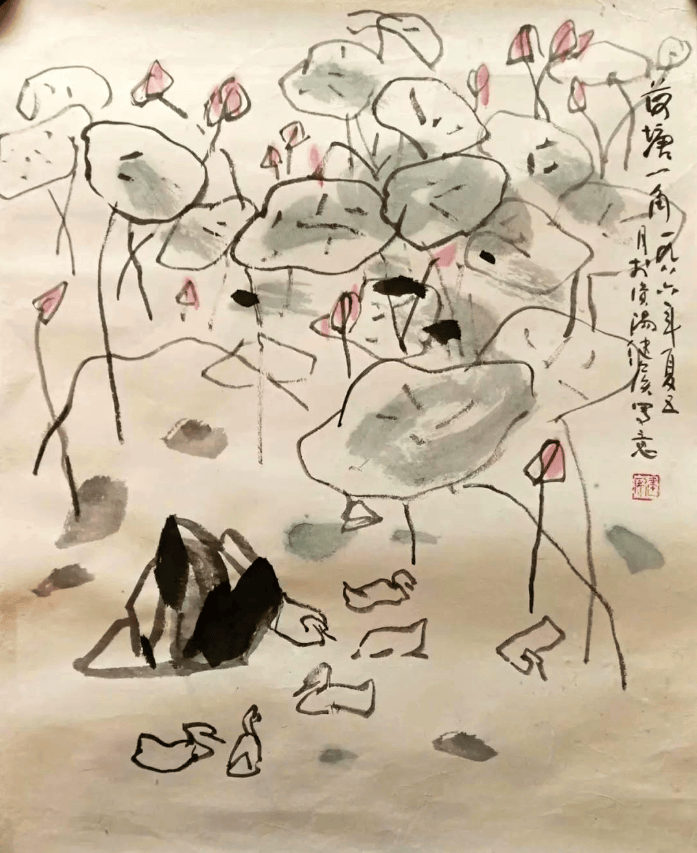 荷塘一角 一九八六年夏五
月於濱陽健侯寫意